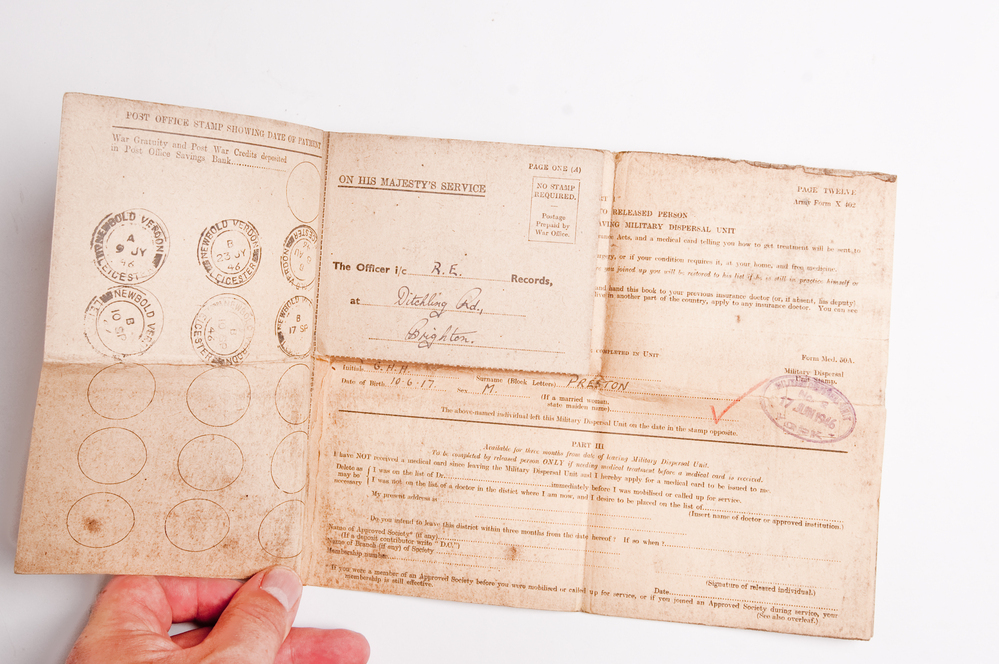 POST OFFICE STAMP SHOWING DATE OF PAYMENT
War Gratuity and Post War Credits deposited
in Post Office Savings Bank
NEWBOLD VERDON
A
9 JY
46
LEICESTER
NEWBOLD VERDON
B
23 JY
46
LEICESTER
NEWBOLD VER
B
10 SP
LEICESTER
B
17 SP
PAGE ONE (A)
ON HIS MAJESTY'S SERVICE
NO STAMP
REQUIRED.
Postage
Prepaid by
War Office.
The Officer i/c R.E. Records,
at Ditchling Rd.,
Brighton.
PAGE TWELVE
Army Form X 402
TO RELEASED PERSON
MILITARY DISPERSAL UNIT
Acts, and a medical card telling you how to get treatment will be sent to
or if your condition requires it, at your home, and free medicine.
you joined up you will be restored to his list if he is still in practice himself or
and hand this book to your previous insurance doctor (or, if absent, his deputy)
in another part of the country, apply to any insurance doctor. You can see
COMPLETED IN UNIT
Form Med. 50A.
Military Dispersal
Unit Stamp.
Initials G.H.H. Surname (Block Letters) PRESTON
Date of Birth 10-6-17. Sex M. (If a married woman,
state maiden name)
17 JUN 1946
The above-named individual left this Military Dispersal Unit on the date in the stamp opposite.
PART III
Available for three months from date of leaving Military Dispersal Unit.
To be completed by released person ONLY if needing medical treatment before a medical card is received.
I have NOT received a medical card since leaving the Military Dispersal Unit and I hereby apply for a medical card to be issued to me.
Delete as
may be
necessary
I was on the list of Dr. immediately before I was mobilised or called up for service.
I was not on the list of a doctor in the district where I am now, and I desire to be placed on the list of
(Insert name of doctor or approved institution.)
My present address is
Do you intend to leave this district within three months from the date hereof? If so when?
Name of Approved Society* (if any)
(If a deposit contributor write "D.C.")
Name of Branch (if any) of Society
Membership number
(Signature of released individual.)
Date
*If you were a member of an Approved Society before you were mobilised or called up for service, or if you joined an Approved Society during service, your
membership is still effective.
(See also overleaf.)